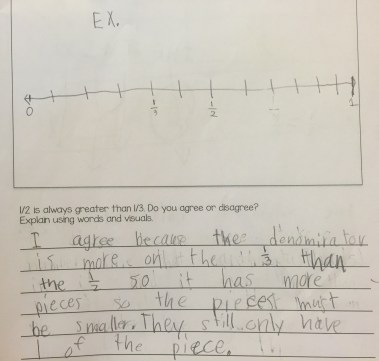 EX.
0 1/3 1/2 1
1/2 is always greater than 1/3. Do you agree or disagree?
Explain using words and visuals.
I agree because the denominator
is more on the 1/3 than
the 1/2 so it has more
pieces so the pieces must
be smaller. They still only have
1 of the piece.